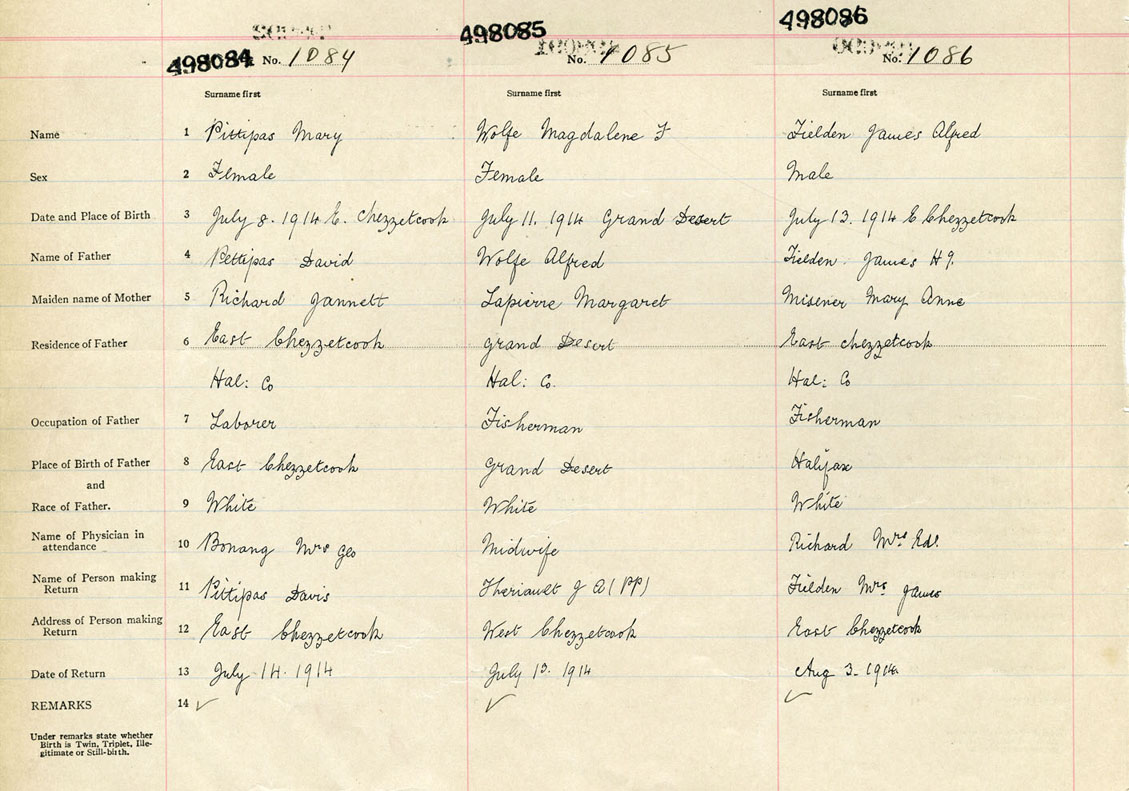 498084 No. 1084 498085 No. 1085 498086 No. 1086
Surname first Surname first Surname first
Name 1 Pittipas Mary Wolfe Magdalene F Fielden James Alfred
Sex 2 Female Female Male
Date and Place of Birth 3 July 8. 1914 E. Chezzetcook July 11. 1914 Grand Desert July 13. 1914 E Chezzetcook
Name of Father 4 Pettipas David Wolfe Alfred Fielden James H
Maiden name of Mother 5 Richard Jannett Lapierre Margaret Misener Mary Anne
Residence of Father 6 East Chezzetcook Grand Desert East Chezzetcook
Hal: Co Hal: Co. Hal: Co
Occupation of Father 7 Laborer Fisherman Fisherman
Place of Birth of Father 8 East Chezzetcook Grand Desert Halifax
and
Race of Father. 9 White White White
Name of Physician in
attendance 10 Bonang Mrs Geo Midwife Richard Mrs Ed.
Name of Person making
Return 11 Pittipas Davis Theriault J A (PP) Fielden Mrs James
Address of Person making
Return 12 East Chezzetcook West Chezzetcook East Chezzetcook
Date of Return 13 July 14. 1914 July 1914 Aug 3. 1914.
REMARKS 14
Under remarks state whether
Birth is Twin, Triplet, Ille-
gitimate or Still-birth.